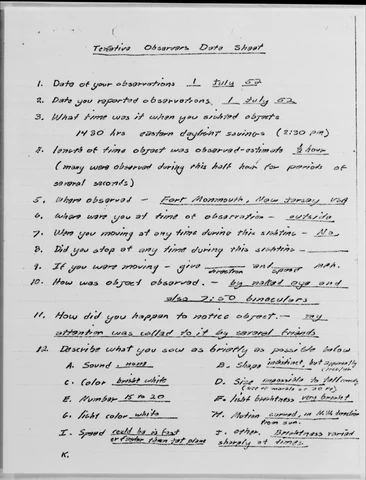 Tentative Observers Data Sheet
1. Date of your observations 1 July 52
2. Date you reported observations 1 July 52
3. What time was it when you sighted objects
1430 hrs eastern daylight savings (2:30 pm)
length of time object was observed-estimate ½ hour
(many were observed during this half hour for periods of
several seconds)
5. Where observed - Fort Monmouth, New Jersey USA
6. Where were you at time of observation - outside
7. Were you moving at any time during this sighting - No
8. Did you stop at any time during this sighting -
9. If you were moving - give direction and speed mph.
10. How was object observed. - by naked eye and
also 7:50 binoculars
11. How did you happen to notice object. - my
attention was called to it by several friends
12. Describe what you saw as briefly as possible below
A. Sound. none
B. Shape indistinct, but apparently
C. Color bright white
D. Size impossible to tell
E. Number 15 to 20
F. light brightness very bright
G. light color white
H. Motion curved, in N.W. direction
from sun.
I. Speed could be as fast
or faster than jet plane
J. other. Brightness varied
sharply at times
K.